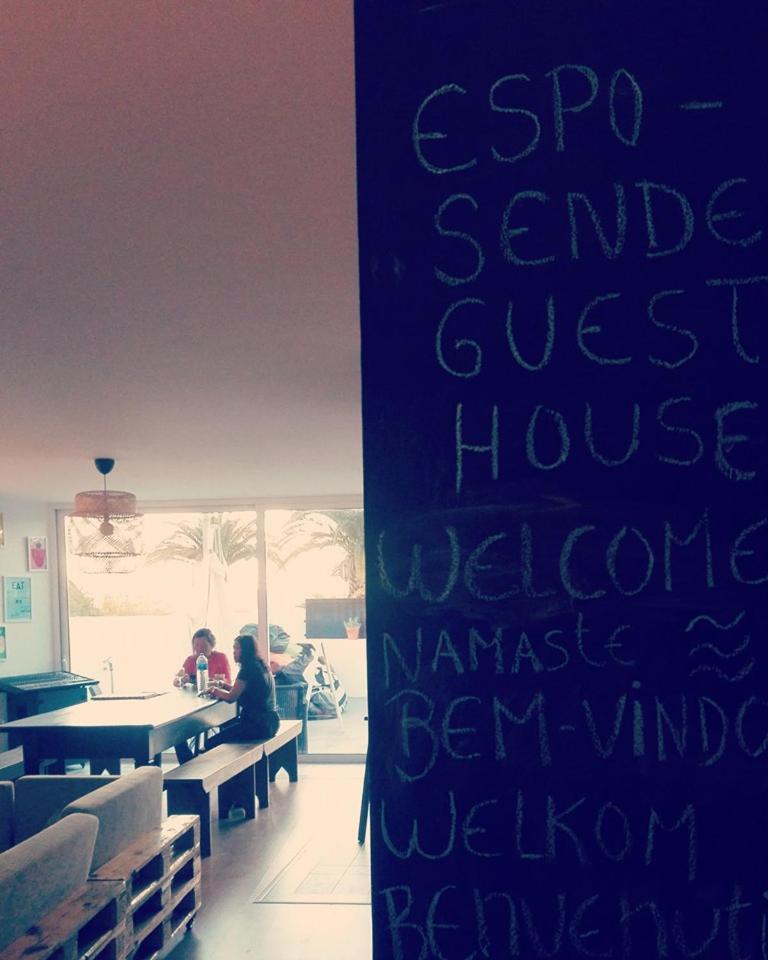 ESPO-
SENDE
GUEST
HOUSE
WELCOME
NAMASTE
BEM-VINDO
WELKOM
BENVENUTI
EAT